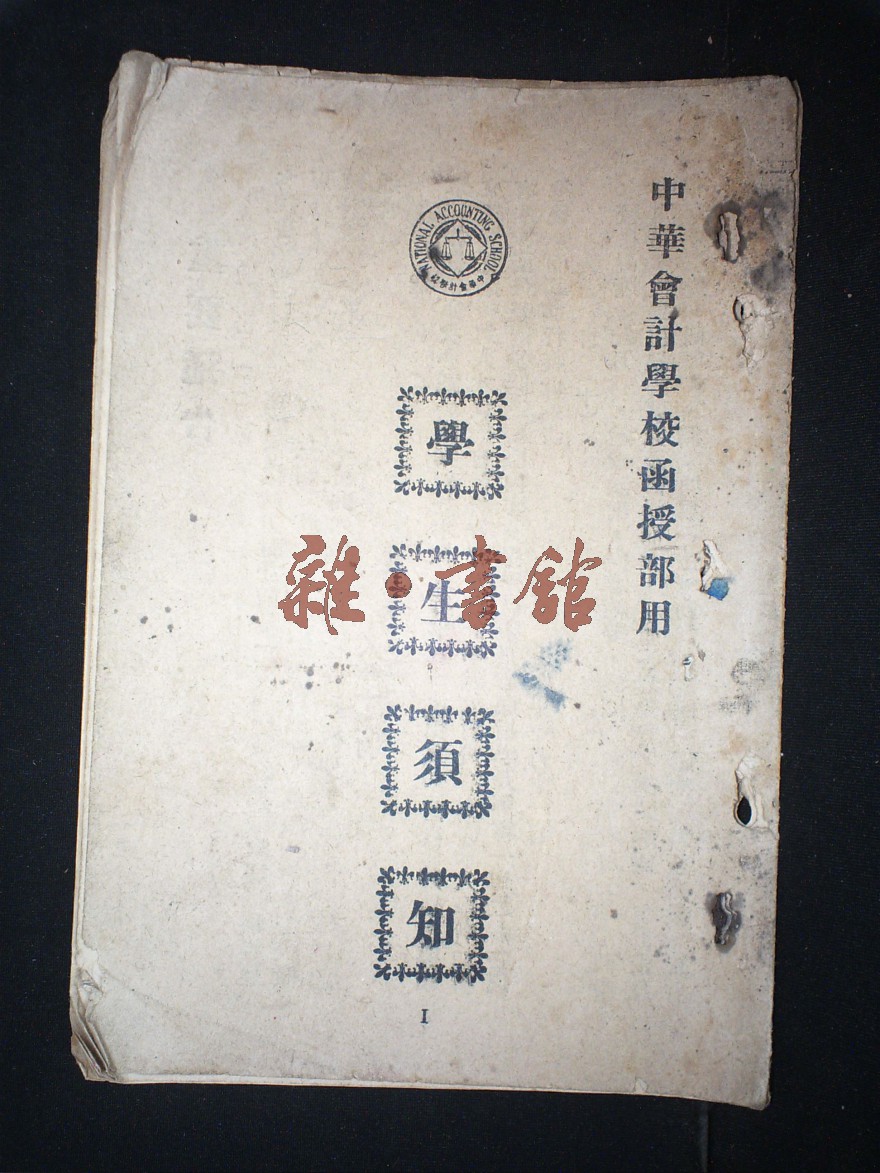 中華會計學校函授部用
NATIONAL ACCOUNTING SCHOOL
中華會計學校
學生須知
I
雜·書館